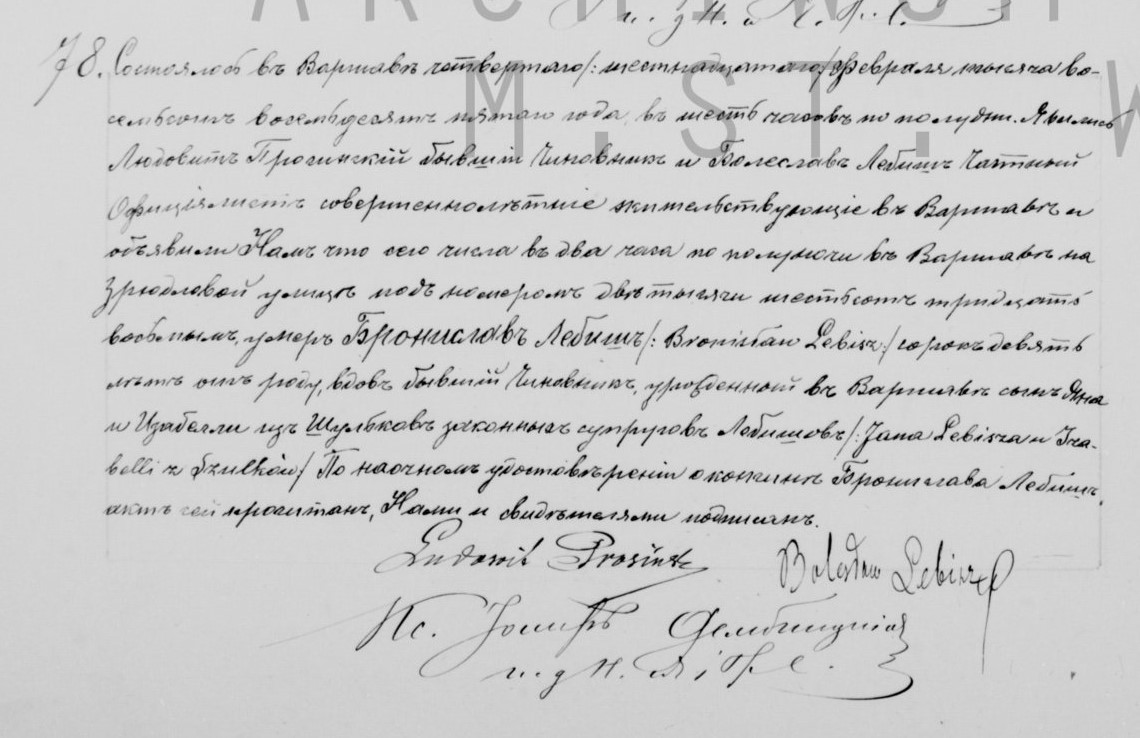 ARCHIWUM
M.ST. W
78. Состоялось въ Варшавѣ четвертаго /: шестнадцатаго / Февраля тысяча во-
семьсотъ восемьдесятъ пятаго года, въ шесть часовъ по полудни. Явились
Людовитъ Просинскій бывшій Чиновникъ и Болеславъ Лебишъ Частный
Офиціялистъ совершеннолѣтніе жительствующіе въ Варшавѣ и
объявили Намъ что сего числа въ два часа по полуночи въ Варшавѣ на
Зрюдловой улицѣ подъ номеромъ двѣ тысячи шестьсотъ тридцать
восьмымъ, умеръ Брониславъ Лебишъ /: Bronisław Lebisz :/ сорокъ девять
лѣтъ отъ роду, вдовъ бывшій Чиновникъ, урожденный въ Варшавѣ сынъ Яна
и Изабелли изъ Шульковъ законныхъ супруговъ Лебишовъ /: Jana Lebisza и Iza-
belli z Szulków / По наочномъ удостовѣреніи о кончинѣ Бронислава Лебишъ,
актъ сей прочитанъ, Нами и свидѣтелями подписанъ.
Ludowit Prosiński Bolesław Lebisz
Кс. Іосифъ
и. д. Н.